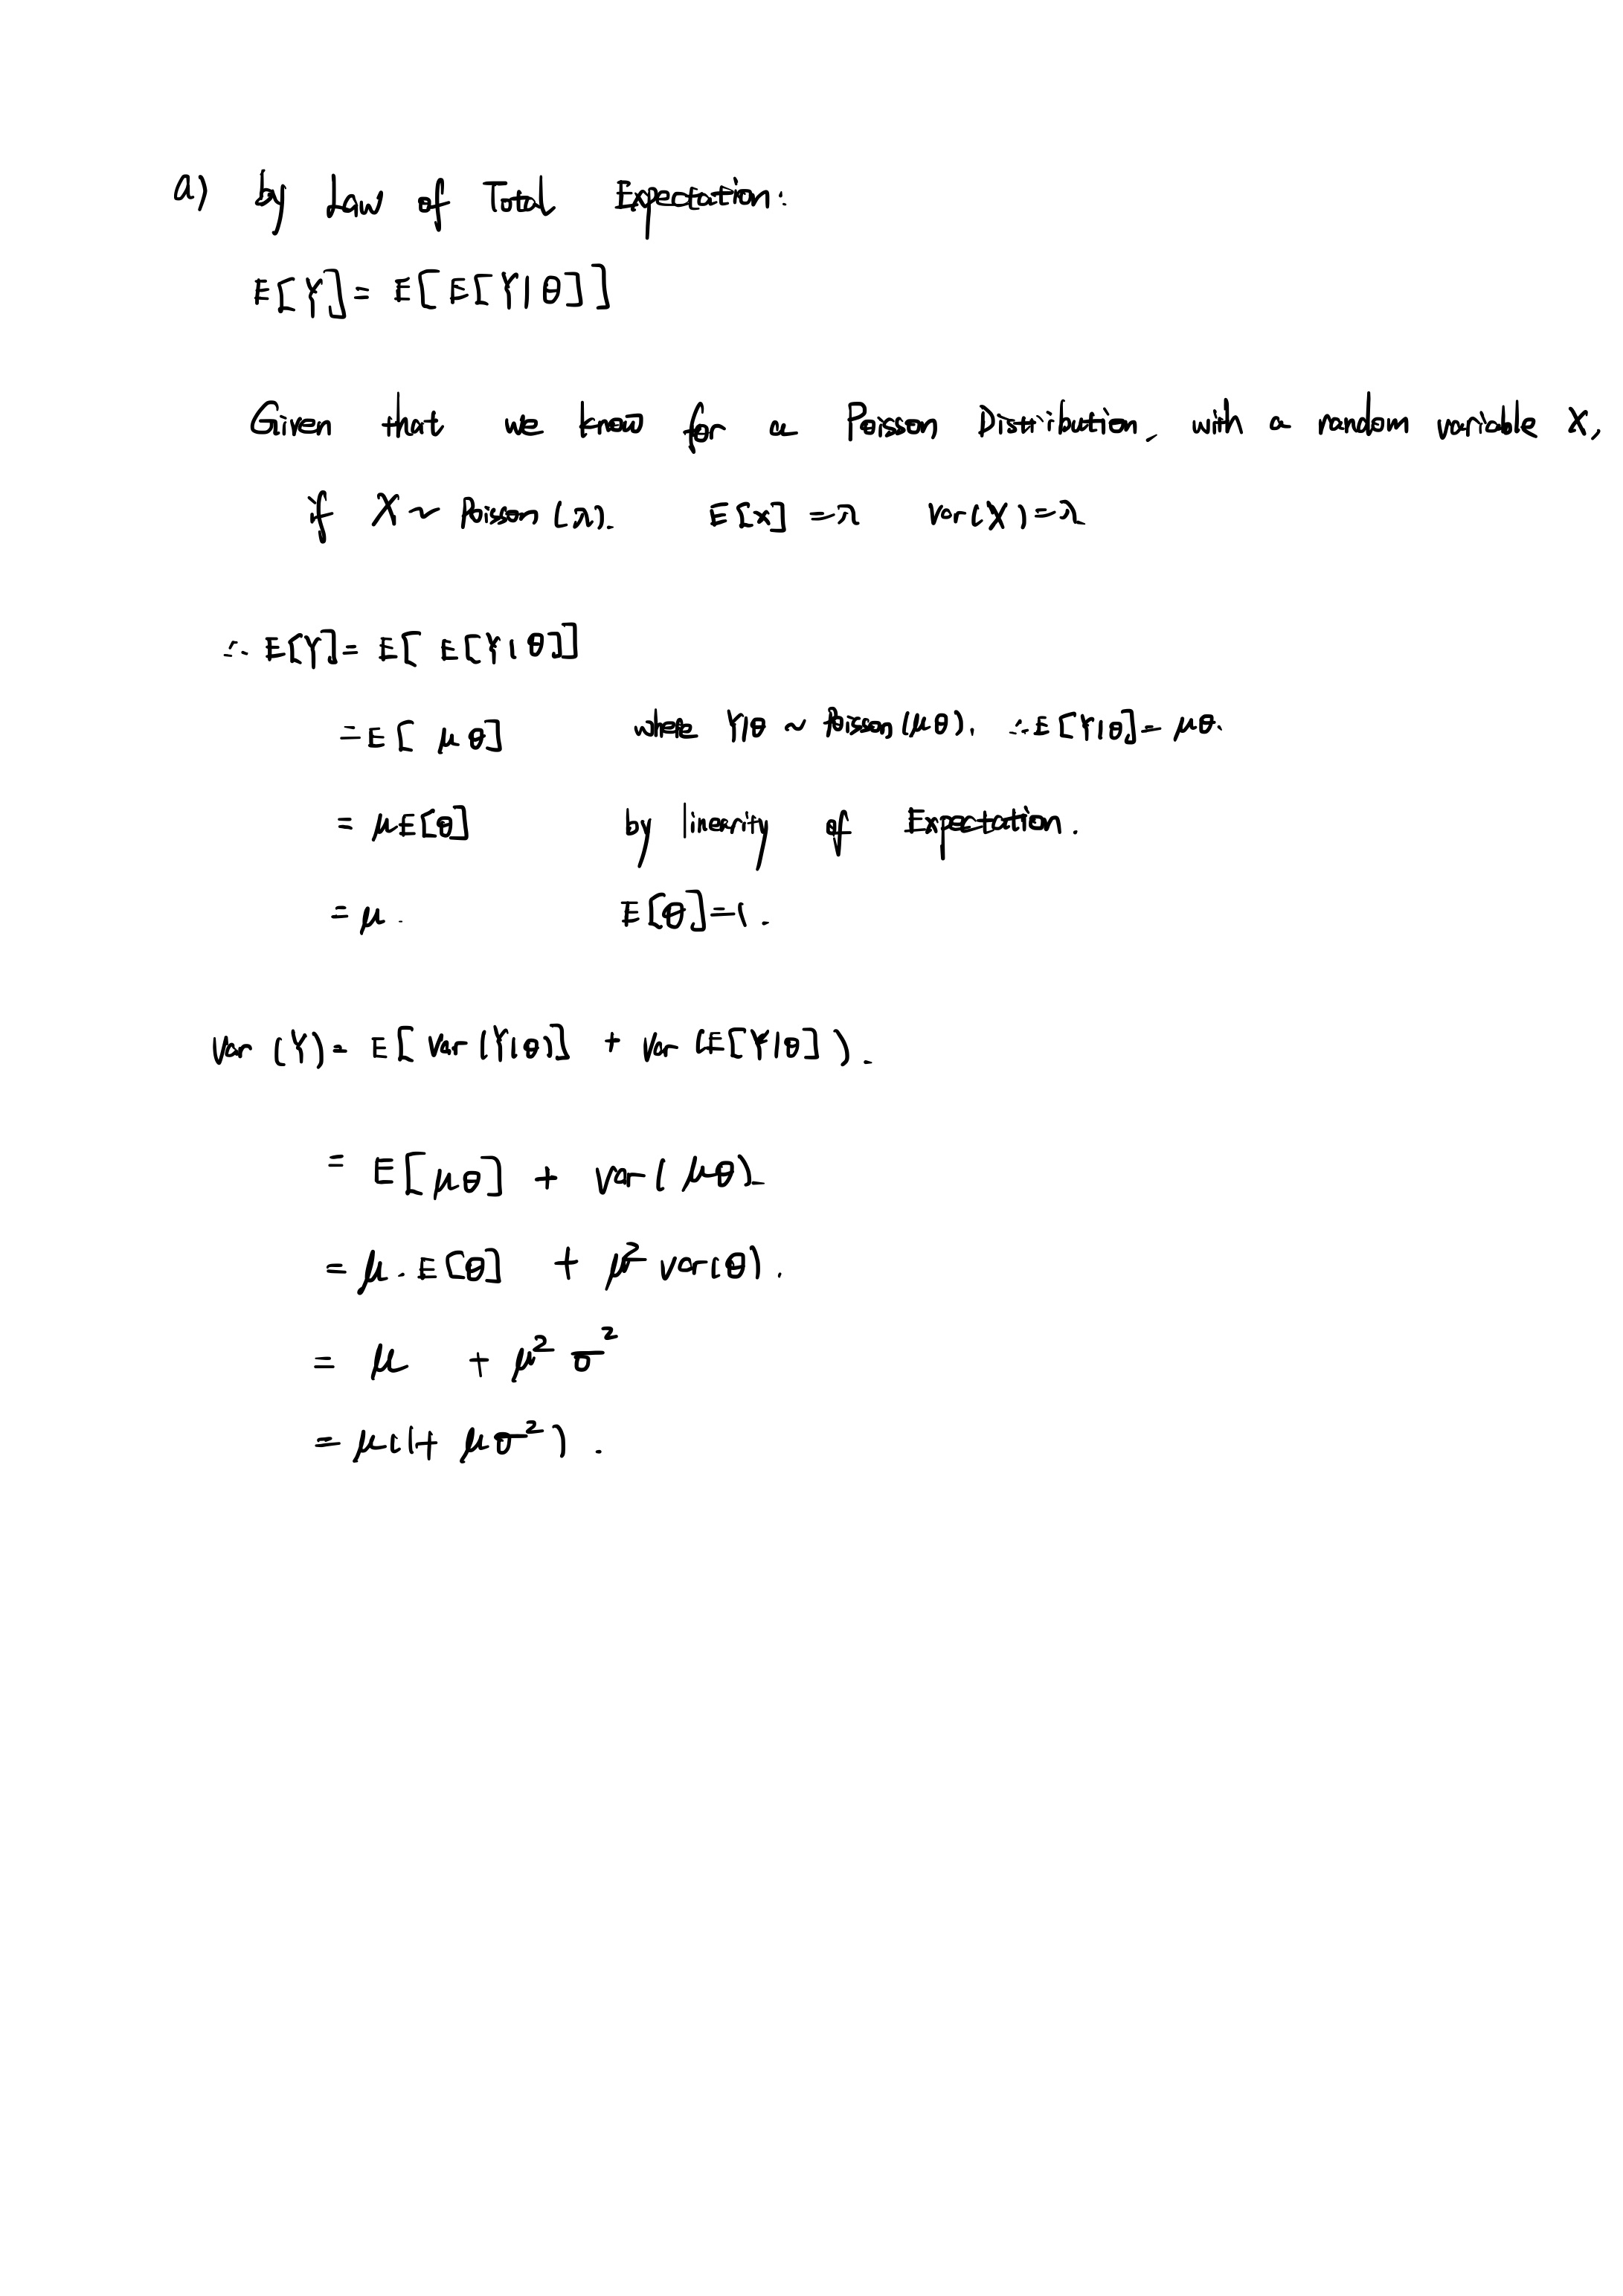 a) by Law of Total Expectation.
E[Y] = E[E[Y|θ]]
Given that we know for a Poisson Distribution, with a random variable X,
if X ~ Poisson (λ). E[X] = λ Var(X) = λ
∴ E[Y] = E[ E[Y|θ]]
= E[ μθ] where Y|θ ~ Poisson (μθ). ∴ E[Y|θ] = μθ.
= μE[θ] by linerity of Expectation.
= μ. E[θ] = 1.
Var (Y) = E[Var(Y|θ)] + Var (E[Y|θ]).
= E[μθ] + Var( μθ).
= μ. E[θ] + μ² Var(θ).
= μ + μ² σ²
= μ(1+ μσ²).